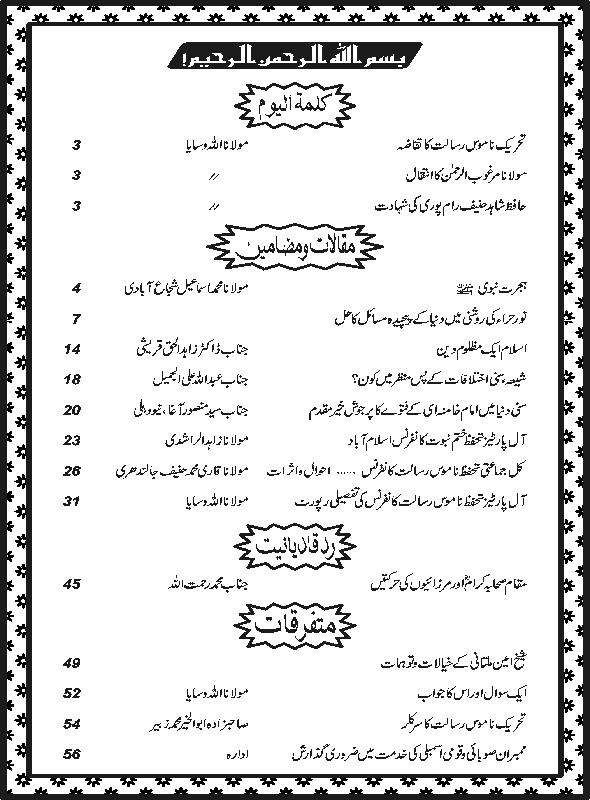 بسم اللہ الرحمن الرحیم!
کلمة الیوم
تحریک ناموس رسالت کا تقاضہ مولانا اللہ وسایا 3
مولانا مرغوب الرحمٰن کا انتقال // 3
حافظ شاہد حنیف رام پوری کی شہادت // 3
مقالات و مضامین
ہجرت نبوی ﷺ مولانا محمد اسماعیل شجاع آبادی 4
نور حراء کی روشنی میں دنیا کے پیچیدہ مسائل کا حل 7
اسلام ایک مظلوم دین جناب ڈاکٹر زاہد الحق قریشی 14
شیعہ سنی اختلافات کے پس منظر میں کون؟ جناب عبداللہ علی الجمیل 18
سنی دنیا میں امام خامنہ ای کے فتوے کا پرجوش خیر مقدم جناب سید منصور آغا، نیو دہلی 20
آل پارٹیز تحفظ ختم نبوت کانفرنس اسلام آباد مولانا زاہد الراشدی 23
کل جماعتی تحفظ ناموس رسالت کانفرنس ...... احوال و اثرات مولانا قاری محمد حنیف جالندھری 26
آل پارٹیز تحفظ ناموس رسالت کانفرنس کی تفصیلی رپورٹ مولانا اللہ وسایا 31
رد قادیانیت
مقام صحابہ کرامؓ اور مرزائیوں کی حرکتیں جناب محمد رحمت اللہ 45
متفرقات
شیخ امین ملتانی کے خیالات و توہمات 49
ایک سوال اور اس کا جواب مولانا اللہ وسایا 52
تحریک ناموس رسالت کا سرکلر صاحبزادہ ابوالخیر محمد زبیر 54
ممبران صوبائی و قومی اسمبلی کی خدمت میں ضروری گذارش ادارہ 56